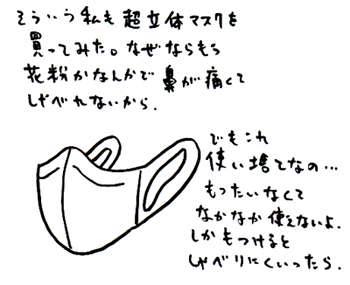 そういう私も超立体マスクを
買ってみた。なぜならもう
花粉かなんかで鼻が痛くて
しゃべれないから.
でもこれ
使い捨てなの…
もったいなくて
なかなか使えないよ.
しかもつけると
しゃべりにくいったら.